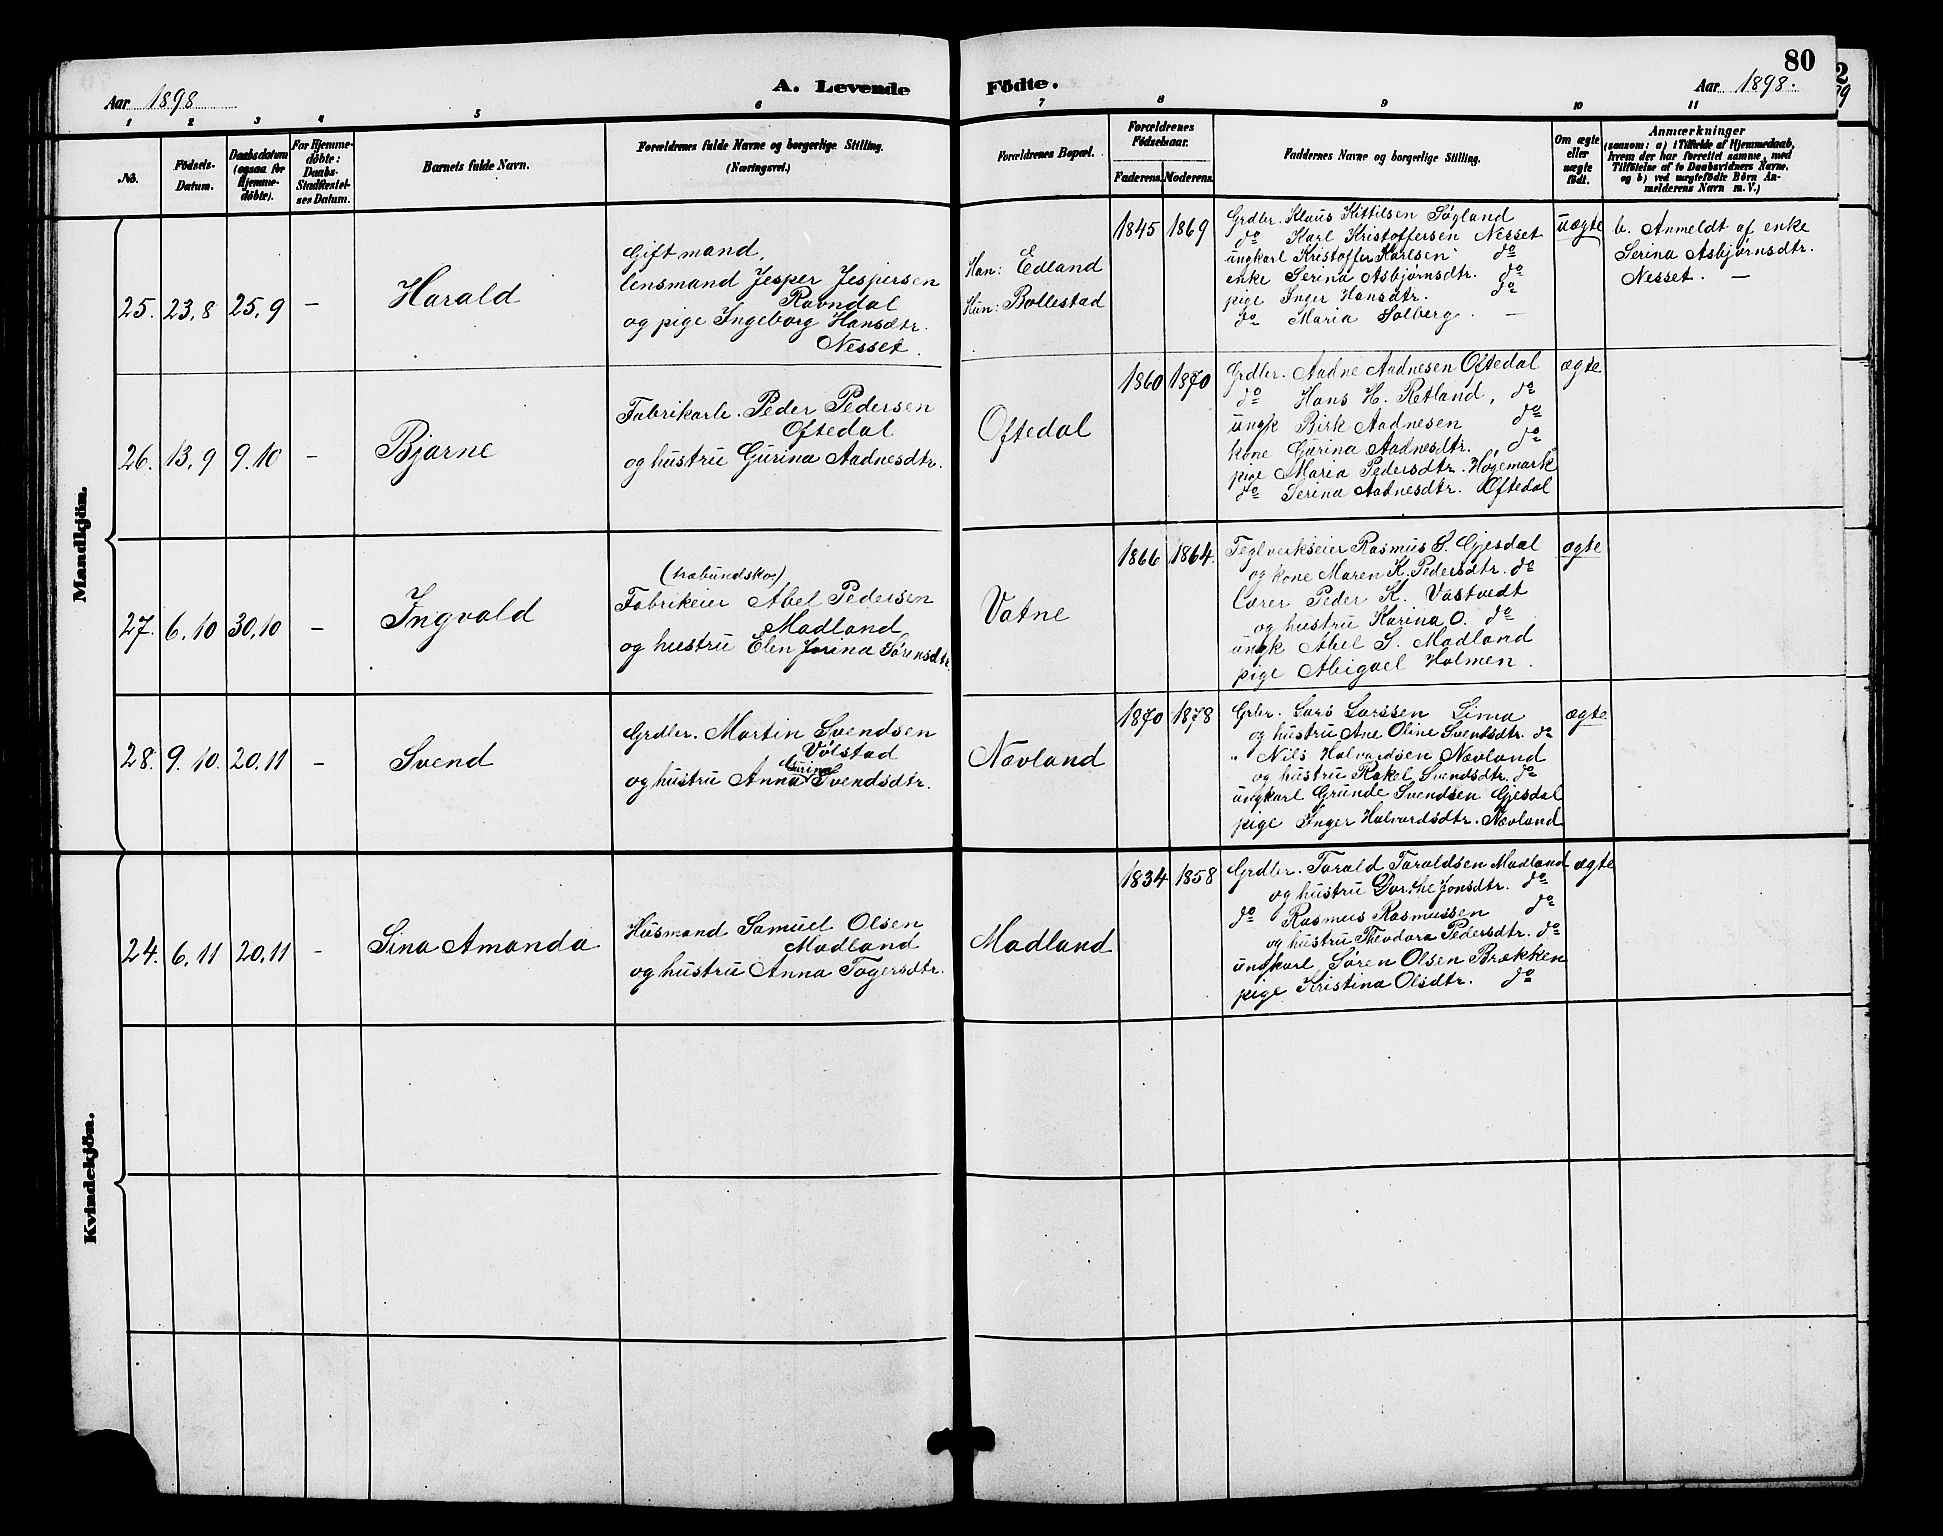 80
Aar 1898
A. Levende Fødte.
Aar 1898.
1 2 3 4 5 6 7 8 9 10 11
No.
Fødsels-
Datum.
Daabsdatum
(ogsaa for
Hjemme-
døbte).
For Hjemme-
døbte:
Daabs-
Stadfæstel-
ses Datum.
Barnets fulde Navn.
Forældrenes fulde Navne og borgerlige Stilling.
(Næringsvei.)
Forældrenes Bopæl.
Forældrenes
Fødselsaar.
Faderens. Moderens.
Faddernes Navne og borgerlige Stilling.
Om ægte
eller
uægte
født.
Anmærkninger
(saasom: a) i Tilfælde af Hjemmedaab,
hvem der har forrettet samme, med
Tilføielse af to Daabsvidners Navne.
og b) ved uægtefødte Børn An-
melderens Navn m. V.)
Mandkjøn.
25. 23,8 25,9 –
Harald
Gift mand,
lensmand Jesper Jespersen
Ravndal
og pige Ingeborg Hansdtr.
Nesset.
Han: Edland
Hun: Bollestad
1845 1869
Grdbr. Klaus Kittilsen Søgland
do Karl Kristoffersen Nesset
ungkarl Kristoffer Karlsen do
enke Serina Asbjørnsdtr. do
pige Inger Hansdtr. do
do Maria Solberg. –
uægte
b. Anmeldt af enke
Serina Asbjørnsdtr.
Nesset. –
26. 13,9 9.10 –
Bjarne
Fabrikarb. Peder Pedersen
Oftedal
og hustru Gurina Aadnesdtr.
Oftedal
1860 1870
Grdbr. Aadne Aadnesen Oftedal
do Hans H. Retland, do
ungk Birk Aadnesen do
kone Gurina Aadnesdtr. do
pige Maria Pedersdtr. Høgemark
do Serina Aadnesdtr. Oftedal
ægte
27. 6,10 30,10 –
Ingvald
(træbundsko)
Fabrikeier Abel Pedersen
Madland
og hustru Elen Jorina Sørensdtr.
Vatne
1866 1864.
Teglverkseier Rasmus S. Gjesdal
og kone Maren K. Pedersdtr. do
Lærer Peder K. Vastvedt
og hustru Karina O. do
ungk Abel S. Madland
pige Abigael Holmen.
ægte
28. 9.10. 20.11 –
Svend
Grdbr. Martin Svendsen
Vølstad
Gurina
og hustru Anna Svendsdtr.
Nævland
1870 1878
Grbr. Lars Larssen Lima
og hustru Ane Oline Svendsdtr. do
" Nils Halvardsen Nævland
og hustru Rakel Svendsdtr. do
ungkarl Grunde Svendsen Gjesdal
pige Inger Halvardsdtr. Nævland
ægte
Kvindekjøn.
24. 6,11 20,11 –
Sina Amanda
Husmand Samuel Olsen
Madland
og hustru Anna Togersdtr.
Madland
1834 1858
Grdbr. Torald Toraldsen Madland
og hustru Dorthe Jonsdtr. do
do Rasmus Rasmussen do
og hustru Theodora Pedersdtr. do
ungkarl Søren Olsen Brækken
pige Kristina Olsdtr. do
ægte